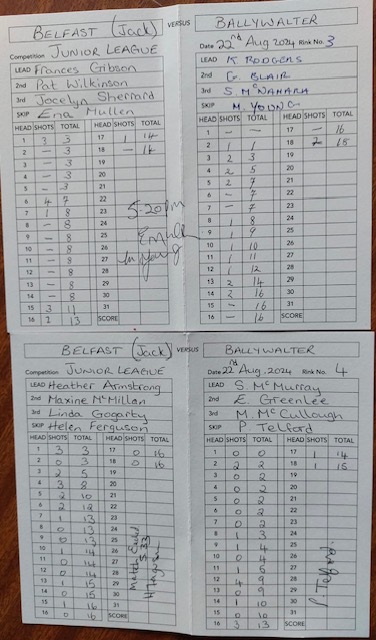 BELFAST (Jack) VERSUS BALLYWALTER
Competition JUNIOR LEAGUE Date 22nd Aug 2024 Rink No. 3
LEAD Frances Gibson
2nd Pat Wilkinson
3rd Jocelyn Sherrard
SKIP Ena Mullen
HEAD SHOTS TOTAL HEAD SHOTS TOTAL
1 3 3 17 1 14
2 – 3 18 – 14
3 – 3 19
4 – 3 20
5 – 3 21
6 4 7 22
7 1 8 23
8 – 8 24
9 – 8 25
10 – 8 26
11 – 8 27
12 – 8 28
13 – 8 29
14 – 8 30
15 3 11 31
16 2 13 SCORE
5.20pm
LEAD K RODGERS
2nd G. BLAIR
3rd S McNAMARA
SKIP M. YOUNG
HEAD SHOTS TOTAL HEAD SHOTS TOTAL
1 – – 17 – 16
2 1 1 18 2 18
3 2 3 19
4 2 5 20
5 2 7 21
6 – 7 22
7 – 7 23
8 1 8 24
9 1 9 25
10 1 10 26
11 1 11 27
12 1 12 28
13 2 14 29
14 2 16 30
15 – 16 31
16 – 16 SCORE
BELFAST (Jack) VERSUS BALLYWALTER
Competition JUNIOR LEAGUE Date 22nd Aug, 2024 Rink No. 4
LEAD Heather Armstrong
2nd Maxine McMillan
3rd Linda Gogarty
SKIP Helen Ferguson
HEAD SHOTS TOTAL HEAD SHOTS TOTAL
1 3 3 17 0 16
2 0 3 18 0 16
3 2 5 19
4 3 8 20
5 2 10 21
6 2 12 22
7 1 13 23
8 0 13 24
9 0 13 25
10 1 14 26
11 0 14 27
12 0 14 28
13 1 15 29
14 0 15 30
15 1 16 31
16 0 16 SCORE
Match Ended
5.33
H Ferguson
LEAD S. McMurray
2nd E. Greenlee
3rd M McCullough
SKIP P Telford
HEAD SHOTS TOTAL HEAD SHOTS TOTAL
1 0 0 17 1 14
2 2 2 18 1 15
3 0 2 19
4 0 2 20
5 0 2 21
6 0 2 22
7 0 2 23
8 1 3 24
9 1 4 25
10 0 4 26
11 1 5 27
12 4 9 28
13 0 9 29
14 1 10 30
15 0 10 31
16 3 13 SCORE
P Telford